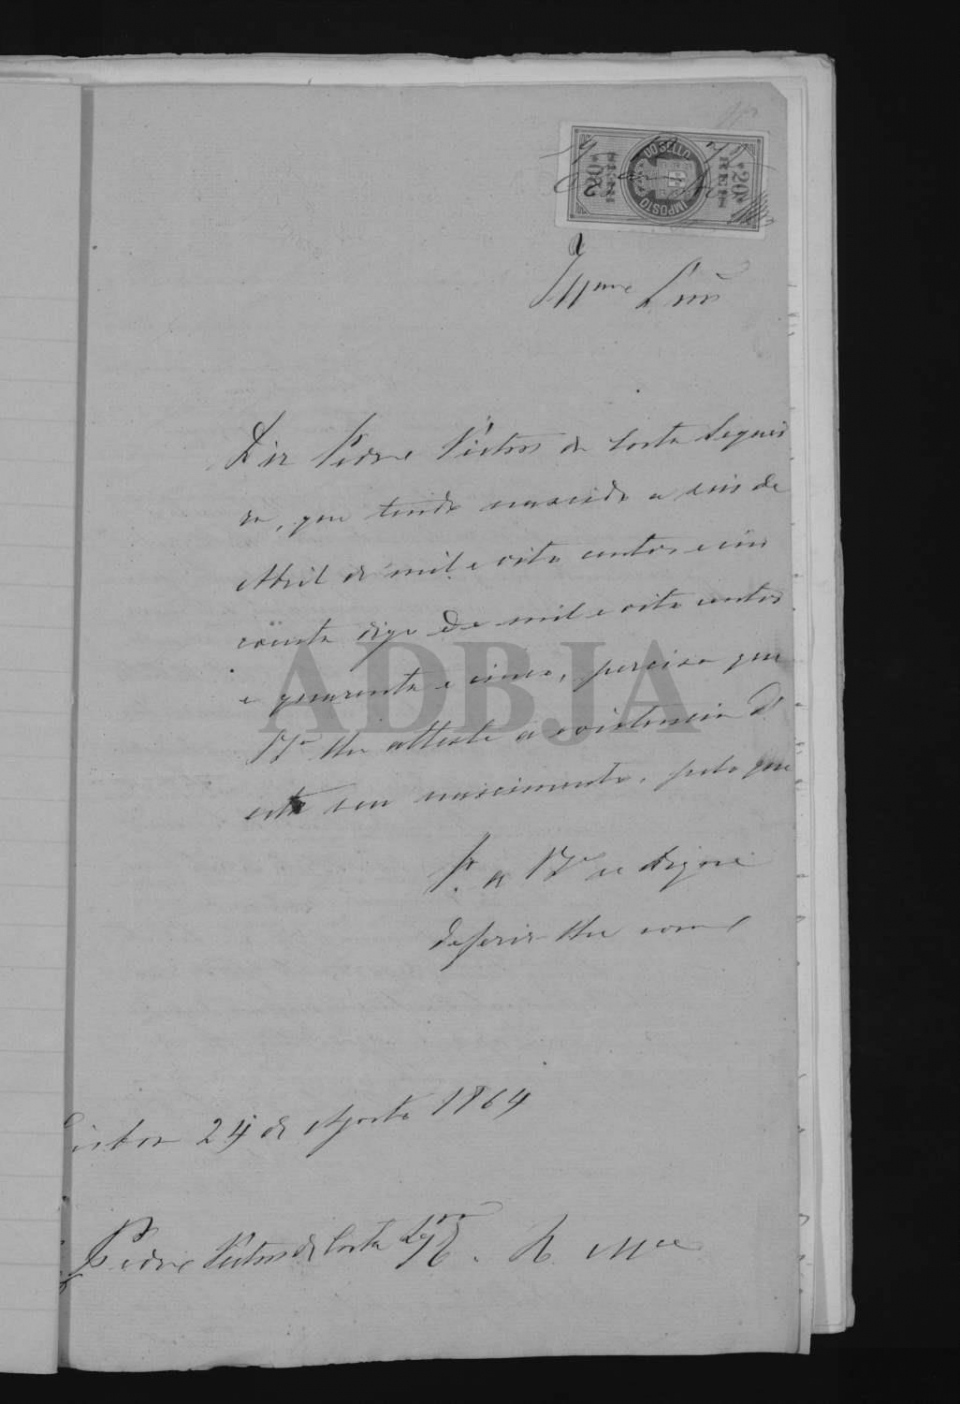 IMPOSTO DO SELLO
20 REIS
Illmo Snr
Diz Pedro Victor da Costa Sequei
ra, que tendo nascido a seis de
Abril de mil e oito centos e cin
coenta digo de mil e oito centos
e quarenta e cinco, percisa que
VSa lhe atteste a existencia d'
este seu nascimento, pelo que
P. a VSa se digne
deferir lhe como
Lisboa 24 de Agosto 1864
Pedro Victor da Costa Seqra. R. Mce
ADBJA